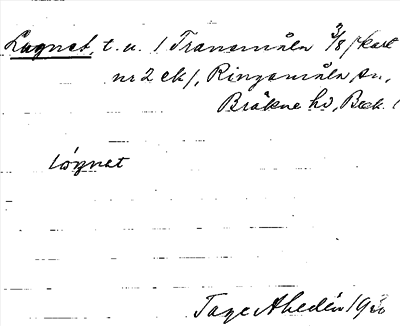 Lugnet, t.u. / Transmåla 3/8 / kart
nr 2 ek /, Ringamåla sn,
Bräkne hd, Blek. l
löŋnet
Tage Ahedén 1930